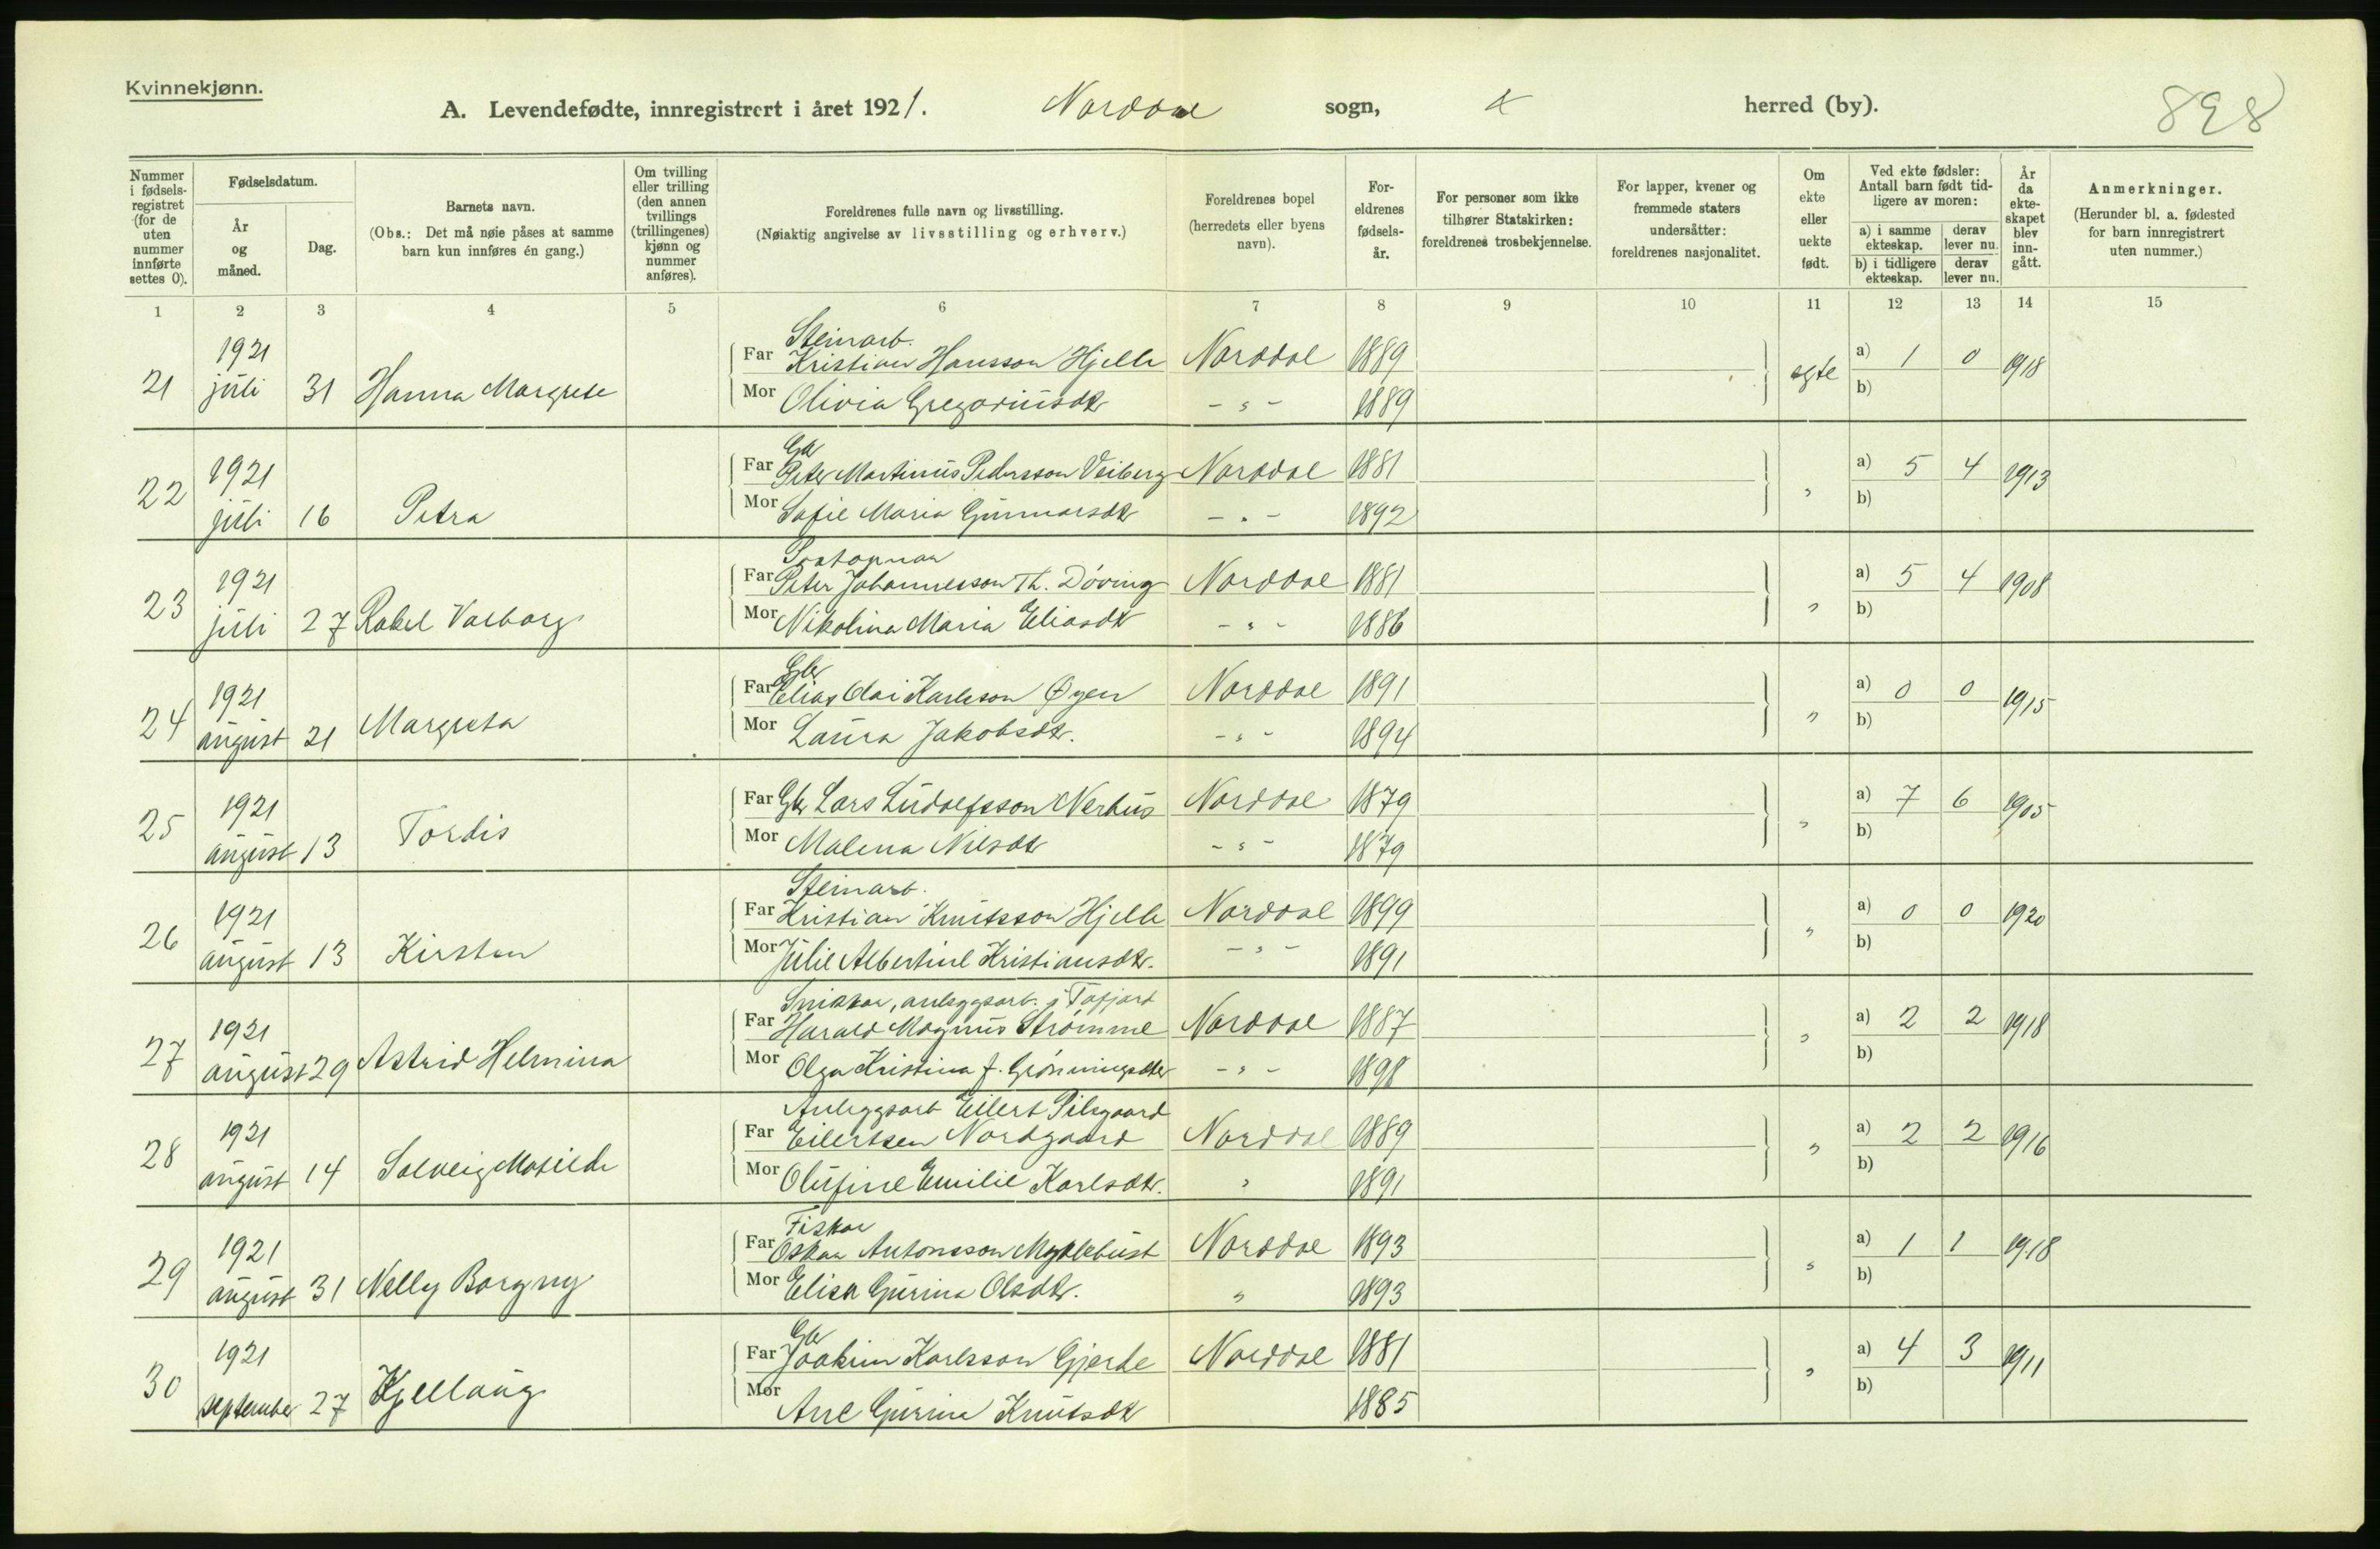 Kvinnekjønn.
A. Levendefødte, innregistrert i året 1921. Norddal sogn, herred (by). 898
Nummer i fødselsregistret (for de uten nummer innførte settes 0).
Fødselsdatum.
År og måned.
Dag.
Barnets navn.
(Obs.: Det må nøie påses at samme barn kun innføres én gang.)
Om tvilling eller trilling (den annen tvillings (trillingenes) kjønn og nummer anføres).
Foreldrenes fulle navn og livsstilling.
(Nøiaktig angivelse av livsstilling og erhverv.)
Foreldrenes bopel (herredets eller byens navn).
Foreldrenes fødselsår.
For personer som ikke tilhører Statskirken: foreldrenes trosbekjennelse.
For lapper, kvener og fremmede staters undersåtter: foreldrenes nasjonalitet.
Om ekte eller uekte født.
Ved ekte fødsler: Antall barn født tidligere av moren:
a) i samme ekteskap. derav lever nu.
b) i tidligere ekteskap. derav lever nu.
År da ekteskapet blev inngått.
Anmerkninger.
(Herunder bl. a. fødested for barn innregistrert uten nummer.)
1 2 3 4 5 6 7 8 9 10 11 12 13 14 15
1921 Steinarb.
Far Kristian Hansson Hjelle Norddal 1889 a) 1 0
21 juli 31 Hanna Margrete egte 1918
Mor Olivia Gregoriusdtr - " - 1889 b)
Gbr
1921 Far Peter Martinus Pedersson Veiberg Norddal 1881 a) 5 4 1913
22 juli 16 Petra "
Mor Sofie Maria Gunnarsdtr - " - 1892 b)
Postopnar
1921 Far Peter Johannesson Th. Døving Norddal 1881 a) 5 4 1908
23 juli 27 Rakel Valborg "
Mor Nikolina Maria Eliasdtr - " - 1886 b)
Gbr
1921 Far Elias Olai Karlsson Øyen Norddal 1891 a) 0 0 1915
24 august 21 Margreta "
Mor Laura Jakobsdtr. - " - 1894 b)
1921 Far Gbr Lars Ludolfsson Nerhus Norddal 1879 a) 7 6 1905
25 august 13 Tordis "
Mor Malena Nilsdtr - " - 1879 b)
Steinarb.
1921 Far Kristian Knutsson Hjelle Norddal 1899 a) 0 0 1920
26 august 13 Kirsten "
Mor Julie Albertine Kristiansdtr. - " - 1891 b)
Snikkar, anleggsarb. i Tafjord
1921 Far Harald Magnus Strømme Norddal 1887 a) 2 2 1918
27 august 29 Astrid Helmina "
Mor Olga Kristina f. Grønningsæter - " - 1898 b)
Anleggsarb Eilert Pilsgaard
1921 Far Eilertsen Nordgaard Norddal 1889 a) 2 2 1916
28 august 14 Solveig Matilde "
Mor Olufine Emilie Karlsdtr. " 1891 b)
Fiskar
1921 Far Oskar Antonsson Myklebust Norddal 1893 a) 1 1 1918
29 august 31 Nelly Borgny "
Mor Elisa Gurina Olsdtr. " 1893 b)
Gbr
1921 Far Joakim Karlsson Gjerde Norddal 1881 a) 4 3 1911
30 september 27 Kjellaug "
Mor Ane Gurina Knutsdtr 1885 b)